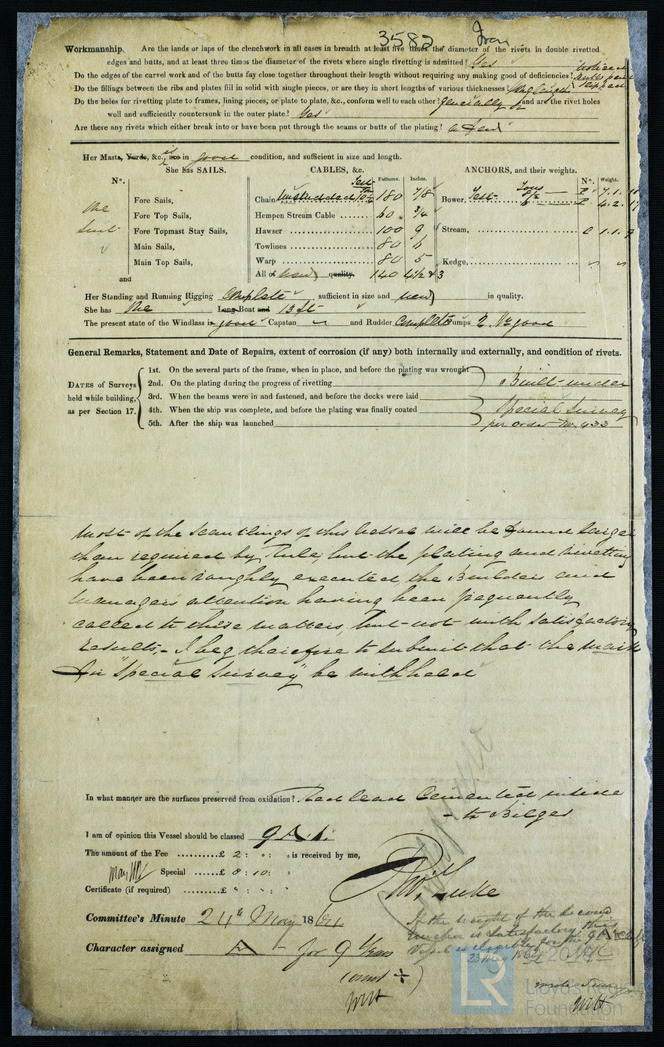 3582 Iron
Workmanship. Are the lands or laps of the clenchwork in all cases in breadth at least five times the diameter of the rivets in double rivetted
edges and butts, and at least three times the diameter of the rivets where single rivetting is admitted? Yes
Do the edges of the carvel work and of the butts fay close together throughout their length without requiring any making good of deficiencies?
Do the fillings between the ribs and plates fill in solid with single pieces, or are they in short lengths of various thicknesses?
Do the holes for rivetting plate to frames, lining pieces, or plate to plate, &c., conform well to each other? Generally so and are the rivet holes
well and sufficiently countersunk in the outer plate? Yes
Are there any rivets which either break into or have been put through the seams or butts of the plating? a few
Her Masts, Yards, &c., are in good condition, and sufficient in size and length.
She has SAILS. CABLES, &c. ANCHORS, and their weights.
N°. Fathoms. Inches. N°. Weight.
Fore Sails, Chain 180 7/8 Bower, Test Tons
one Fore Top Sails, Hempen Stream Cable 60 3/4
suit Fore Topmast Stay Sails, Hawser 100 9 Stream,
Main Sails, Towlines 80 6
Main Top Sails, Warp 80 5 Kedge,
and All of new quality. 140 4 1/2 & 3
Her Standing and Running Rigging Complete sufficient in size and new in quality.
She has One Long Boat and 13 ft
The present state of the Windlass is good Capstan and Rudder Complete Pumps 2 good
General Remarks, Statement and Date of Repairs, extent of corrosion (if any) both internally and externally, and condition of rivets.
DATES of Surveys held while building, as per Section 17.
1st. On the several parts of the frame, when in place, and before the plating was wrought
2nd. On the plating during the progress of rivetting Built under
3rd. When the beams were in and fastened, and before the decks were laid
4th. When the ship was complete, and before the plating was finally coated Special Survey
5th. After the ship was launched per order No. 433
Most of the scantlings of this vessel will be found larger
than required by rule, but the plating and rivetting
have been roughly executed the Builders and
Managers attention having been frequently
called to these matters, but not with satisfactory
results,- I beg therefore to submit that the mark
for "Special Survey" be withheld
In what manner are the surfaces preserved from oxidation? Red lead Cemented inside
to Bilges
I am of opinion this Vessel should be classed 9 A 1.
The amount of the Fee £ 2 : " : " is received by me,
Special £ 8 : 10 :
Certificate (if required) £ " : " :
Luke
Committee's Minute 24th May 1864
If the weight of the second
Anchor is satisfactory this
Vessel is eligible for the 9 A
23 May 1864
Character assigned A - for 9 Years
(omit +)
LR
Lloyd's Register
Foundation